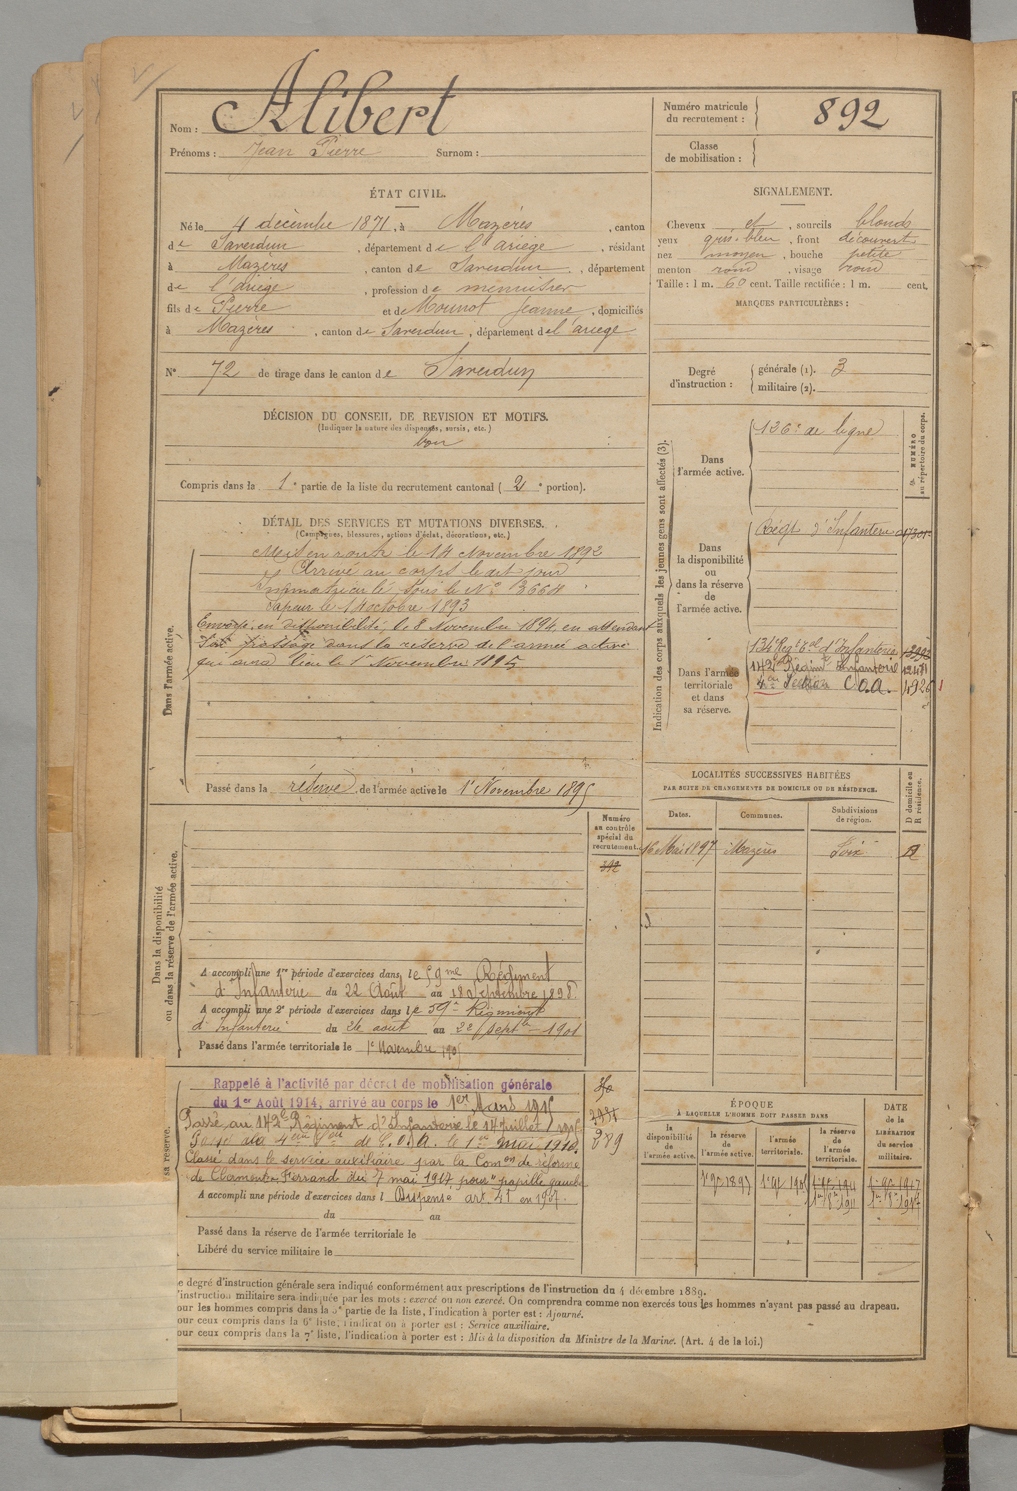 Nom : Alibert
Prénoms : Jean Pierre Surnom :
Numéro matricule du recrutement : 892
Classe de mobilisation :
ÉTAT CIVIL.
Né le 4 décembre 1871, à Mazères, canton
de Saverdun, département de l'ariège, résidant
à Mazères, canton de Saverdun, département
de l'ariège, profession de menuisier
fils de Pierre et de Mounot Jeanne, domiciliés
à Mazères, canton de Saverdun, département de l'ariège
N° 72 de tirage dans le canton de Saverdun
DÉCISION DU CONSEIL DE REVISION ET MOTIFS.
(Indiquer la nature des dispenses, sursis, etc.)
bon
Compris dans la 1e partie de la liste du recrutement cantonal (2e portion).
SIGNALEMENT.
Cheveux et, sourcils blonds
yeux gris-bleu, front découvert
nez moyen, bouche petite
menton rond, visage rond
Taille : 1 m. 60 cent. Taille rectifiée : 1 m. cent.
MARQUES PARTICULIÈRES :
Degré d'instruction : générale (1). 3
militaire (2).
DÉTAIL DES SERVICES ET MUTATIONS DIVERSES.
(Campagnes, blessures, actions d'éclat, décorations, etc.)
Dans l'armée active.
Mis en route le 14 Novembre 1892
Arrivé au corps le dit jour
Immatriculé sous le N° 3668
Sapeur le 1 octobre 1893
Envoyé en disponibilité, le 8 Novembre 1894, en attendant
son passage dans la réserve de l'armée active
qui aura lieu le 1er Novembre 1895
Passé dans la réserve de l'armée active le 1er Novembre 1895
Indication des corps auxquels les jeunes gens sont affectés (3).
NUMÉRO au répertoire du corps.
Dans l'armée active.
126e de ligne
Dans la disponibilité ou dans la réserve de l'armée active.
Régt d'Infanterie
Dans l'armée territoriale et dans sa réserve.
134e Regt Tal d'Infanterie
142e Régimt Infanterie
4eme Section C.O.A.
LOCALITÉS SUCCESSIVES HABITÉES
PAR SUITE DE CHANGEMENTS DE DOMICILE OU DE RÉSIDENCE.
D domicile ou R résidence.
Dates. Communes. Subdivisions de région.
16 Mai 1897 Mazères Foix R
Dans la disponibilité ou dans la réserve de l'armée active.
Numéro au contrôle spécial du recrutement.
392
A accompli une 1re période d'exercices dans le 59me Régiment
d'Infanterie du 22 Août au 18 Septembre 1898
A accompli une 2e période d'exercices dans le 59e Régiment
d'Infanterie du 26 août au 22 septbre 1901
Passé dans l'armée territoriale le 1er Novembre 1905
sa réserve.
Rappelé à l'activité par décret de mobilisation générale
du 1er Août 1914, arrivé au corps le 1er Mars 1915
Passé au 142e Régiment d'Infanterie le 14 Juillet 1915
Passé à la 4eme Son de C.O.A. le 1er mai 1916.
Classé dans le service auxiliaire par la Comon de réforme
de Clermont-Ferrand du 7 mai 1917, pour "papille gauche
A accompli une période d'exercices dans l Dispensé art. 41 en 1907.
du au
Passé dans la réserve de l'armée territoriale le
Libéré du service militaire le
889
ÉPOQUE
À LAQUELLE L'HOMME DOIT PASSER DANS
la disponibilité de l'armée active. la réserve de l'armée active. l'armée territoriale. la réserve de l'armée territoriale.
DATE DE LA LIBÉRATION du service militaire.
e degré d'instruction générale sera indiqué conformément aux prescriptions de l'instruction du 4 décembre 1889.
'instruction militaire sera indiquée par les mots : exercé ou non exercé. On comprendra comme non exercés tous les hommes n'ayant pas passé au drapeau.
our les hommes compris dans la 3e partie de la liste, l'indication à porter est : Ajourné.
our ceux compris dans la 6e liste, l'indication à porter est : Service auxiliaire.
our ceux compris dans la 7e liste, l'indication à porter est : Mis à la disposition du Ministre de la Marine. (Art. 4 de la loi.)